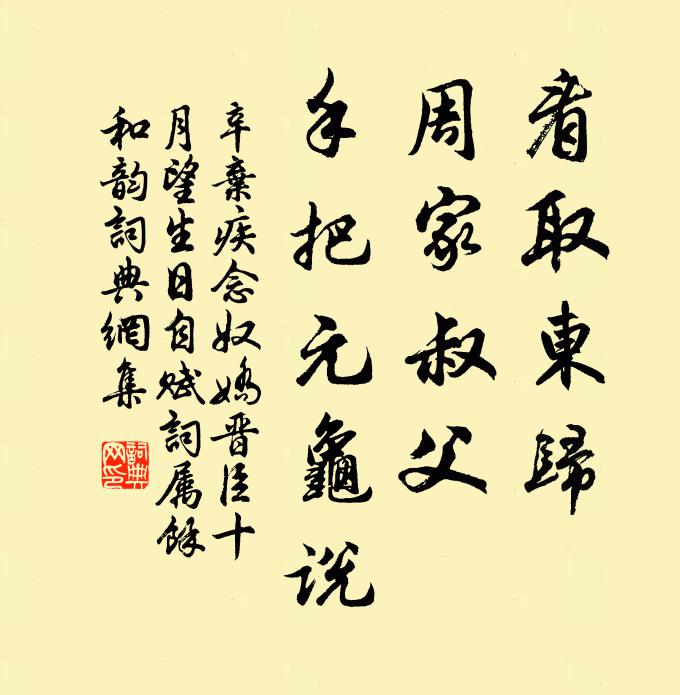 看取東歸
周家叔父
手把元龜說
辛棄疾念奴嬌晋臣十
月望生日自賦詞属餘
和韵詞典網集
詞典網印